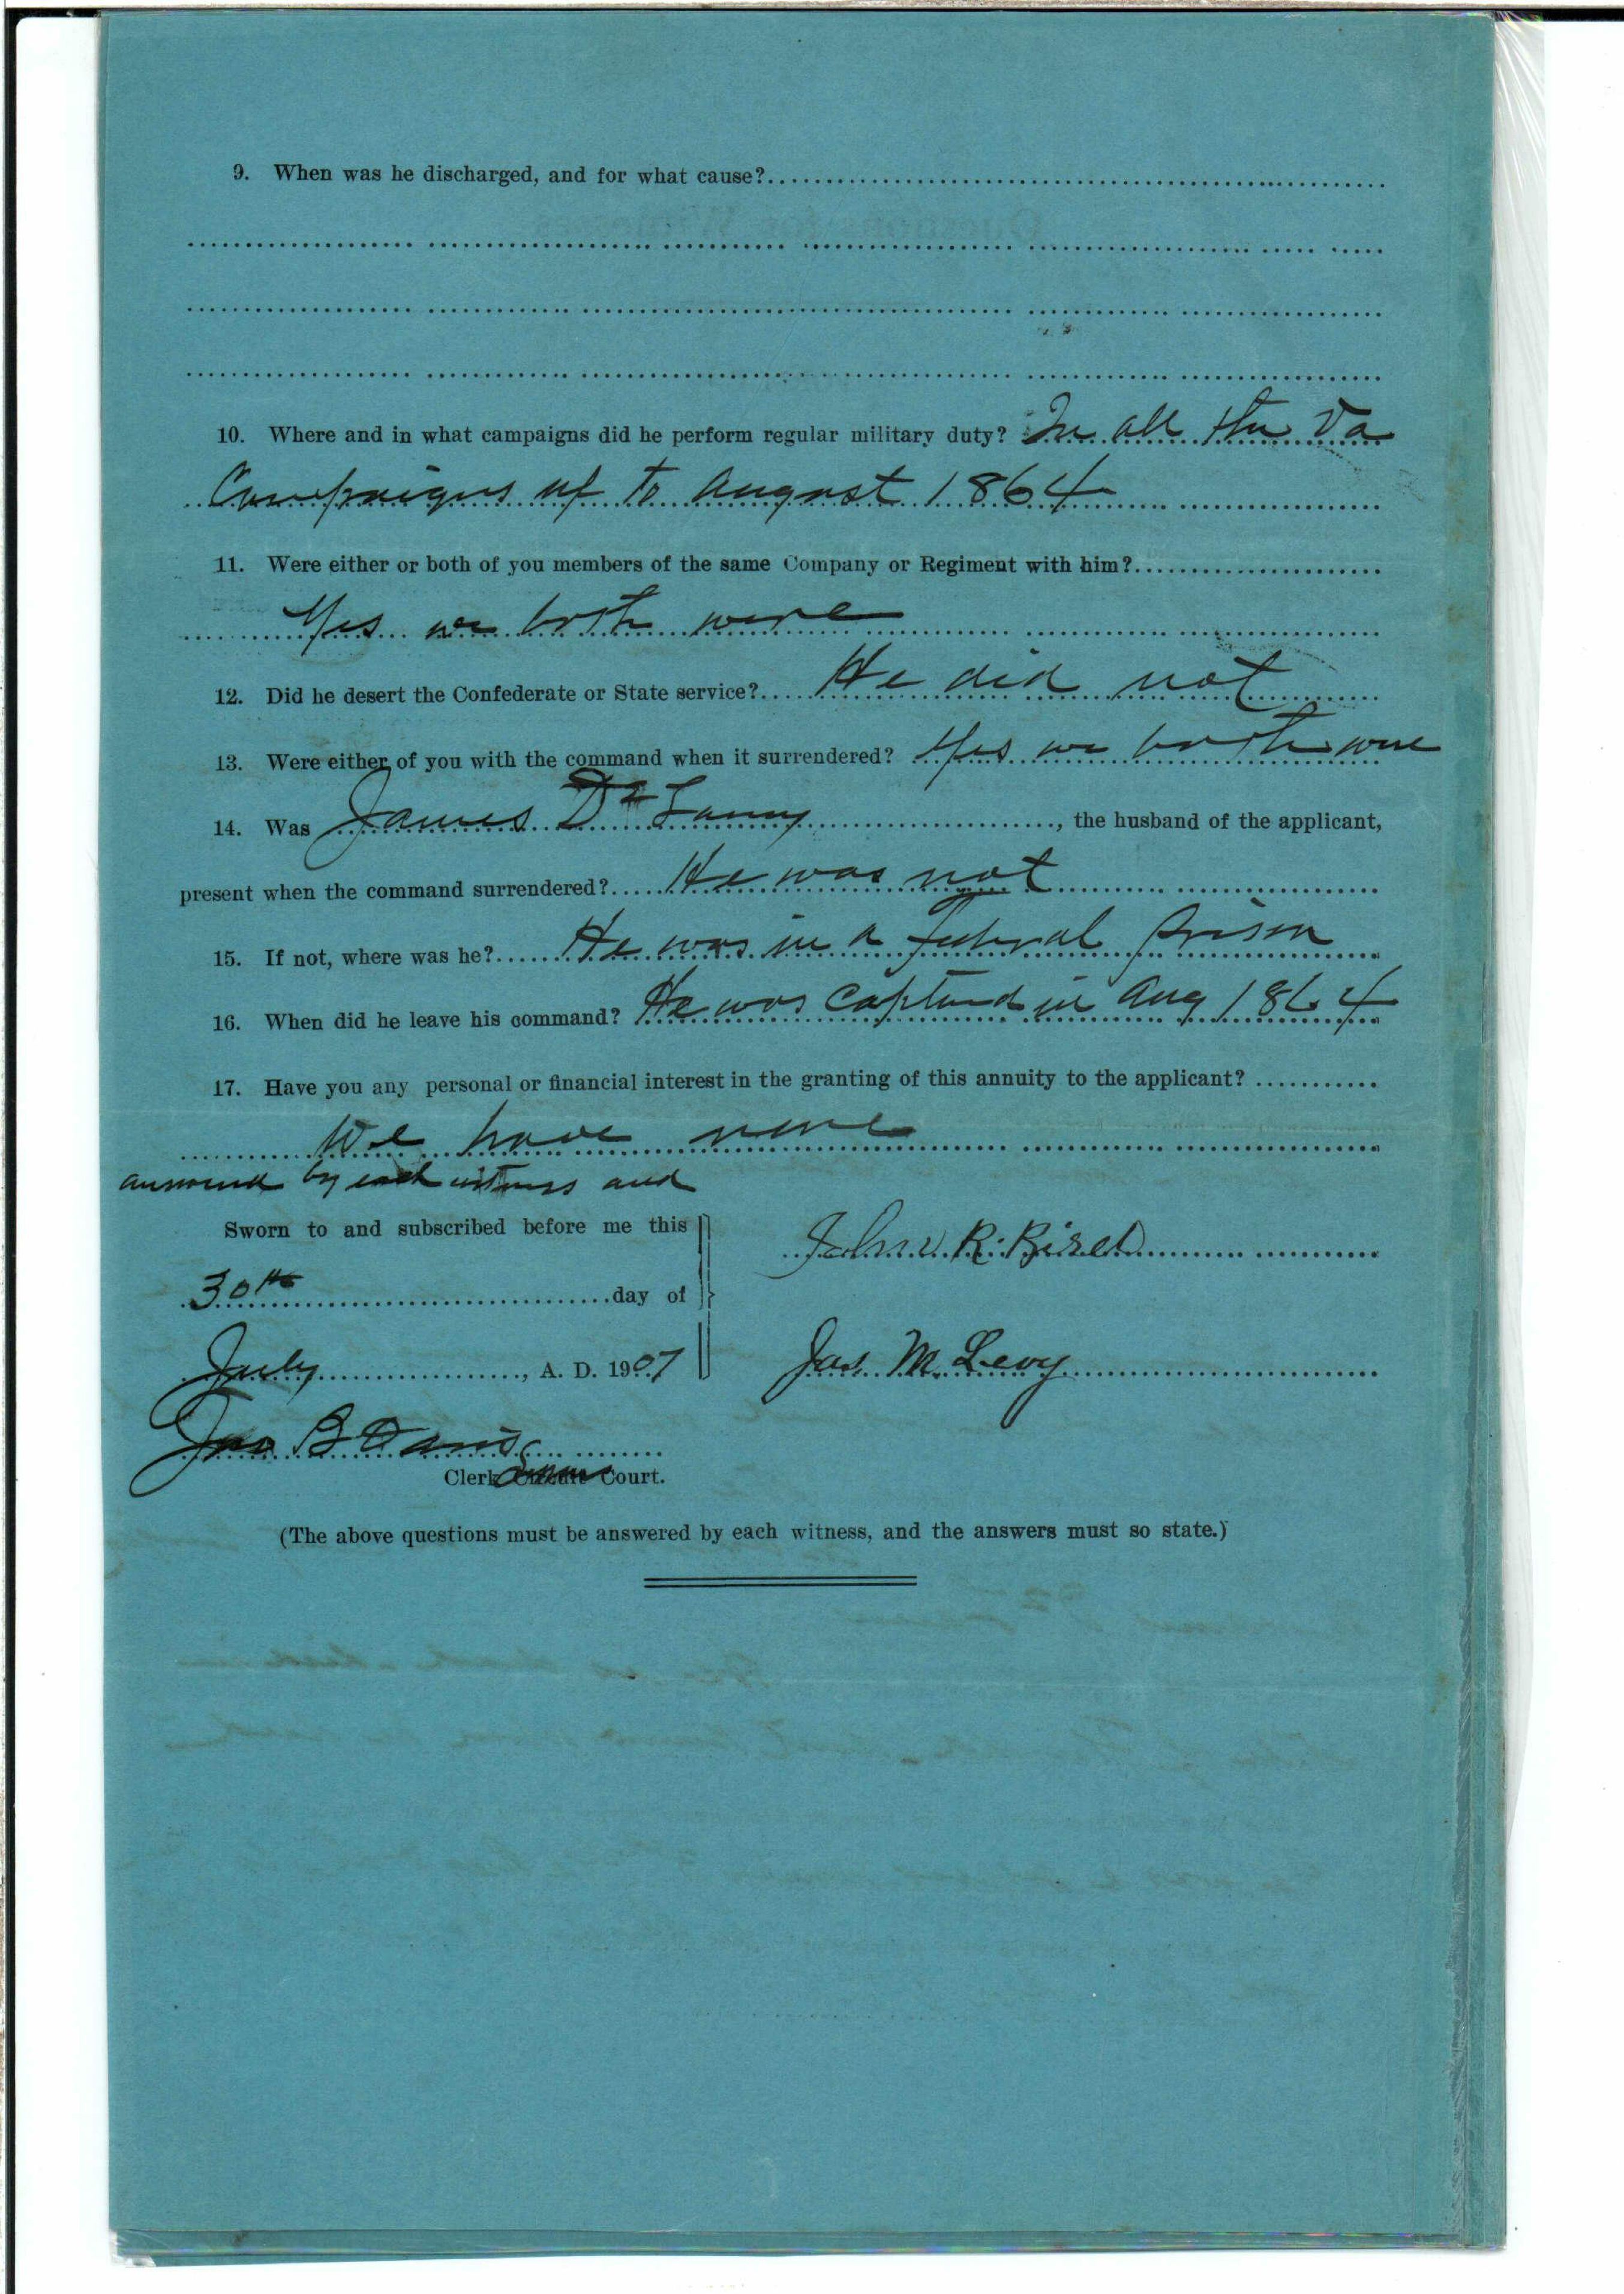 9. When was he discharged, and for what cause?
10. Where and in what campaigns did he perform regular military duty? In all the Va
Campaigns up to August 1864
11. Were either or both of you members of the same Company or Regiment with him?
Yes we both were
12. Did he desert the Confederate or State service? He did not
13. Were either of you with the command when it surrendered? Yes we both were
14. Was James DeLanny, the husband of the applicant,
present when the command surrendered? He was not
15. If not, where was he? He was in a federal prison
16. When did he leave his command? He was Captured in Aug 1864
17. Have you any personal or financial interest in the granting of this annuity to the applicant?
We have none
answered by each witness and
Sworn to and subscribed before me this
John R. Rizer
30th day of
July, A. D. 1907
Jas. M. Levy
Jno B Davis
Clerk Circuit Court.
(The above questions must be answered by each witness, and the answers must so state.)